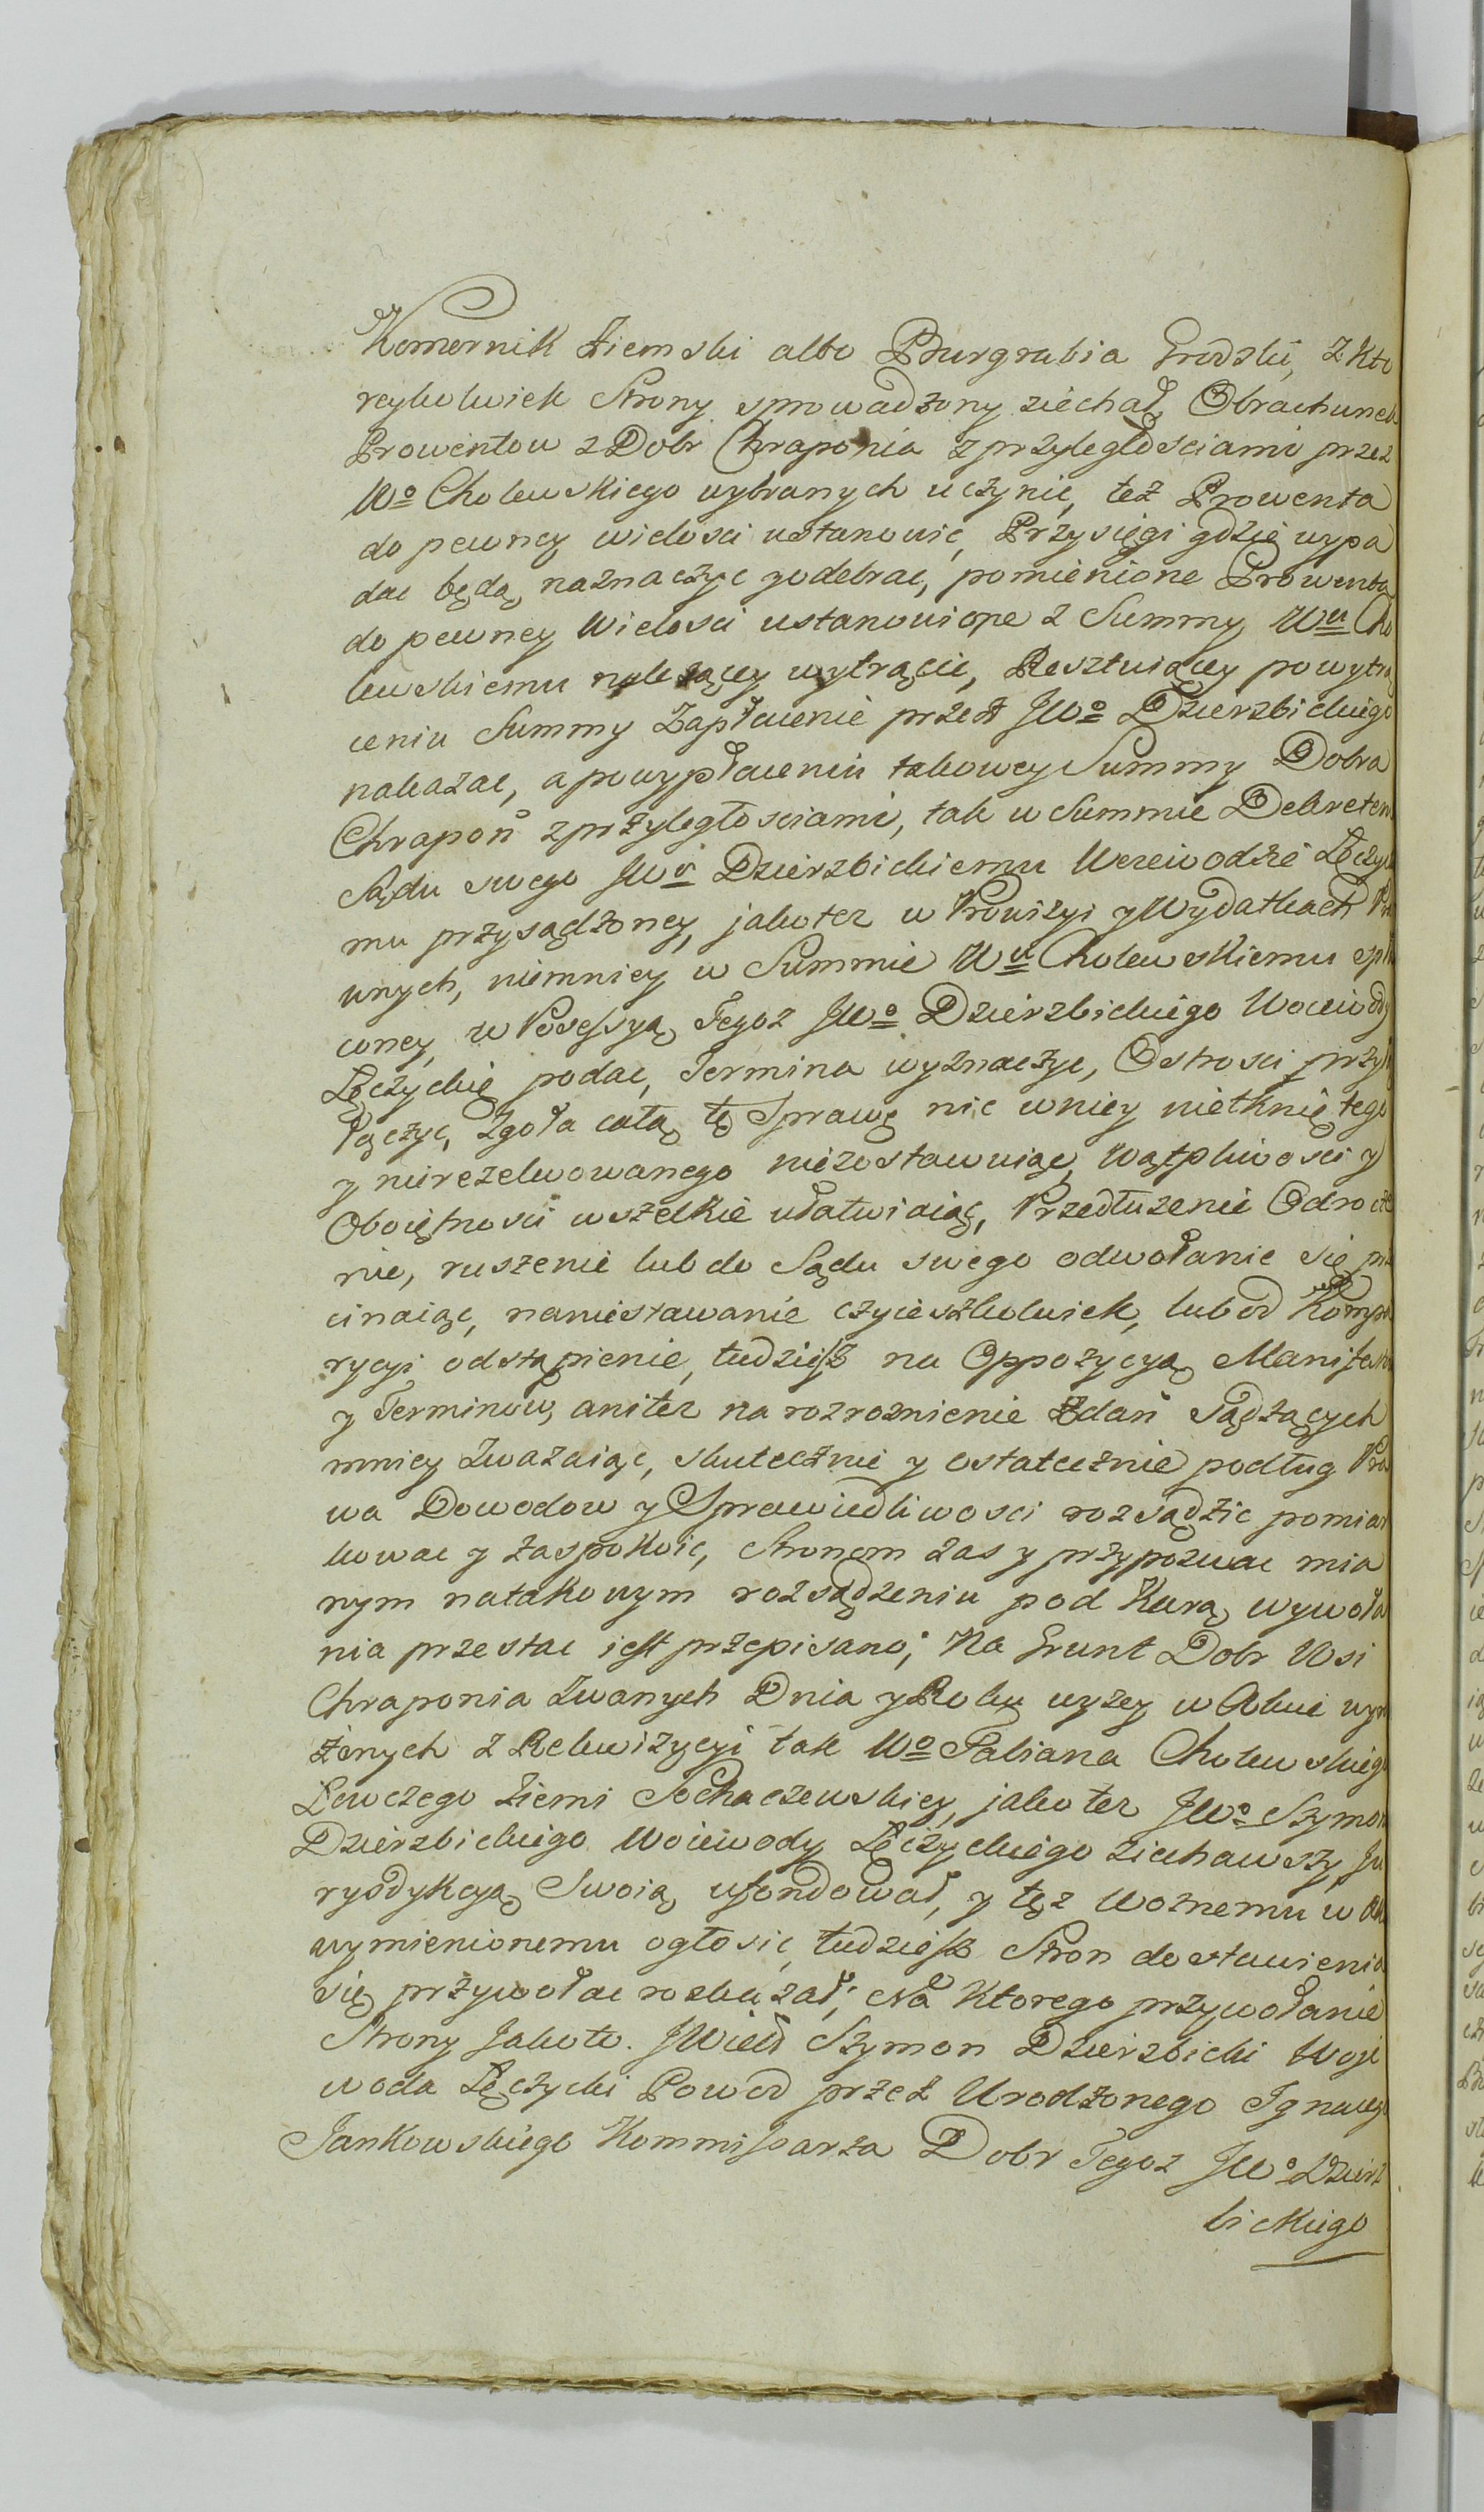 Komornik Ziemski albo Burgrabia Grodski, z Kto
reykolwiek Strony sprowadzony ziechał, Obrachunek
Prowentow z Dobr Chraponia z przyległosciami przez
Wo Cholewskiego wybranych uczynic, też Prowenta
do pewney wielosci ustanowic, Przysięgi gdzie wypa
dac będą, naznaczyc y odebrac, pomienione Prowenta
do pewney Wielosci ustanowione z Summy Wu Cho
lewskiemu należącey wytrącic, Resztuiącey po wytrą
ceniu Summy Zapłacenie przez JWo Dzierzbickiego
nakazac, a po wypłaceniu takowey Summy Dobra
Chrapoń z przyległosciami, tak w Summie Dekretem
Sądu swego JWu Dzierzbickiemu Woiewodzie Łęczyc
mu przysądzoney, jako tez w Prowizyi y Wydatkach Pra
wnych, niemniey w Summie Wu Cholewskiemu spła
coney, w Possessyą Tegoz JWo Dzierzbickiego Woiewody
Łęczyckie podac, Termina wyznaczyc, Ostrosci przyłą
łączyc, Zgoła całą tę Sprawę nic w niey nietkniętego
y nierezolwowanego niezostawuiąc, Wątpliwosci y
Oboiętnosci wszelkie ułatwiaiąc, Przedłużenie Odrocze
nie, ruszenie lub do Sądu swego odwołanie się prze
cinaiąc, na niestawanie czyieszkolwiek, lub od Kompa
rycyi odstąpienie, tudzież na Oppozycyą Manifesta
y Terminow, ani tez na rozroznienie Zdań Sądzących
mniey Zwazaiąc, skutecznie y ostatecznie podług Pra
wa Dowodow y Sprawiedliwosci rozsądzic pomiar
kowac y zaspokoic, Stronom zas y przypozwac mia
nym na takowym rozsądzeniu pod Karą wywoła
nia przestac jest przepisano; Na Grunt Dobr Wsi
Chraponia Zwanych Dnia y Roku wyzey w Akcie wyra
żonych z Rekwizycyi tak Wo Fabiana Cholewskiego
Łowczego Ziemi Sochaczewskiey, jako tez JWo Szymona
Dzierzbickiego Woiewody Łęczyckiego ziechawszy Ju
rysdykcyą Swoią ufondował, y tęż Woznemu w Akcie
wymienionemu ogłosic, tudzież Stron do stawienia
się przywołac roskazał; Na Ktorego przywołanie
Strony Jako to. JWielo Szymon Dzierzbicki Woje
woda Łęczycki Powod przez Urodzonego Ignacego
Jankowskiego Kommissarza Dobr Tegoz JWo Dzierz
bickiego